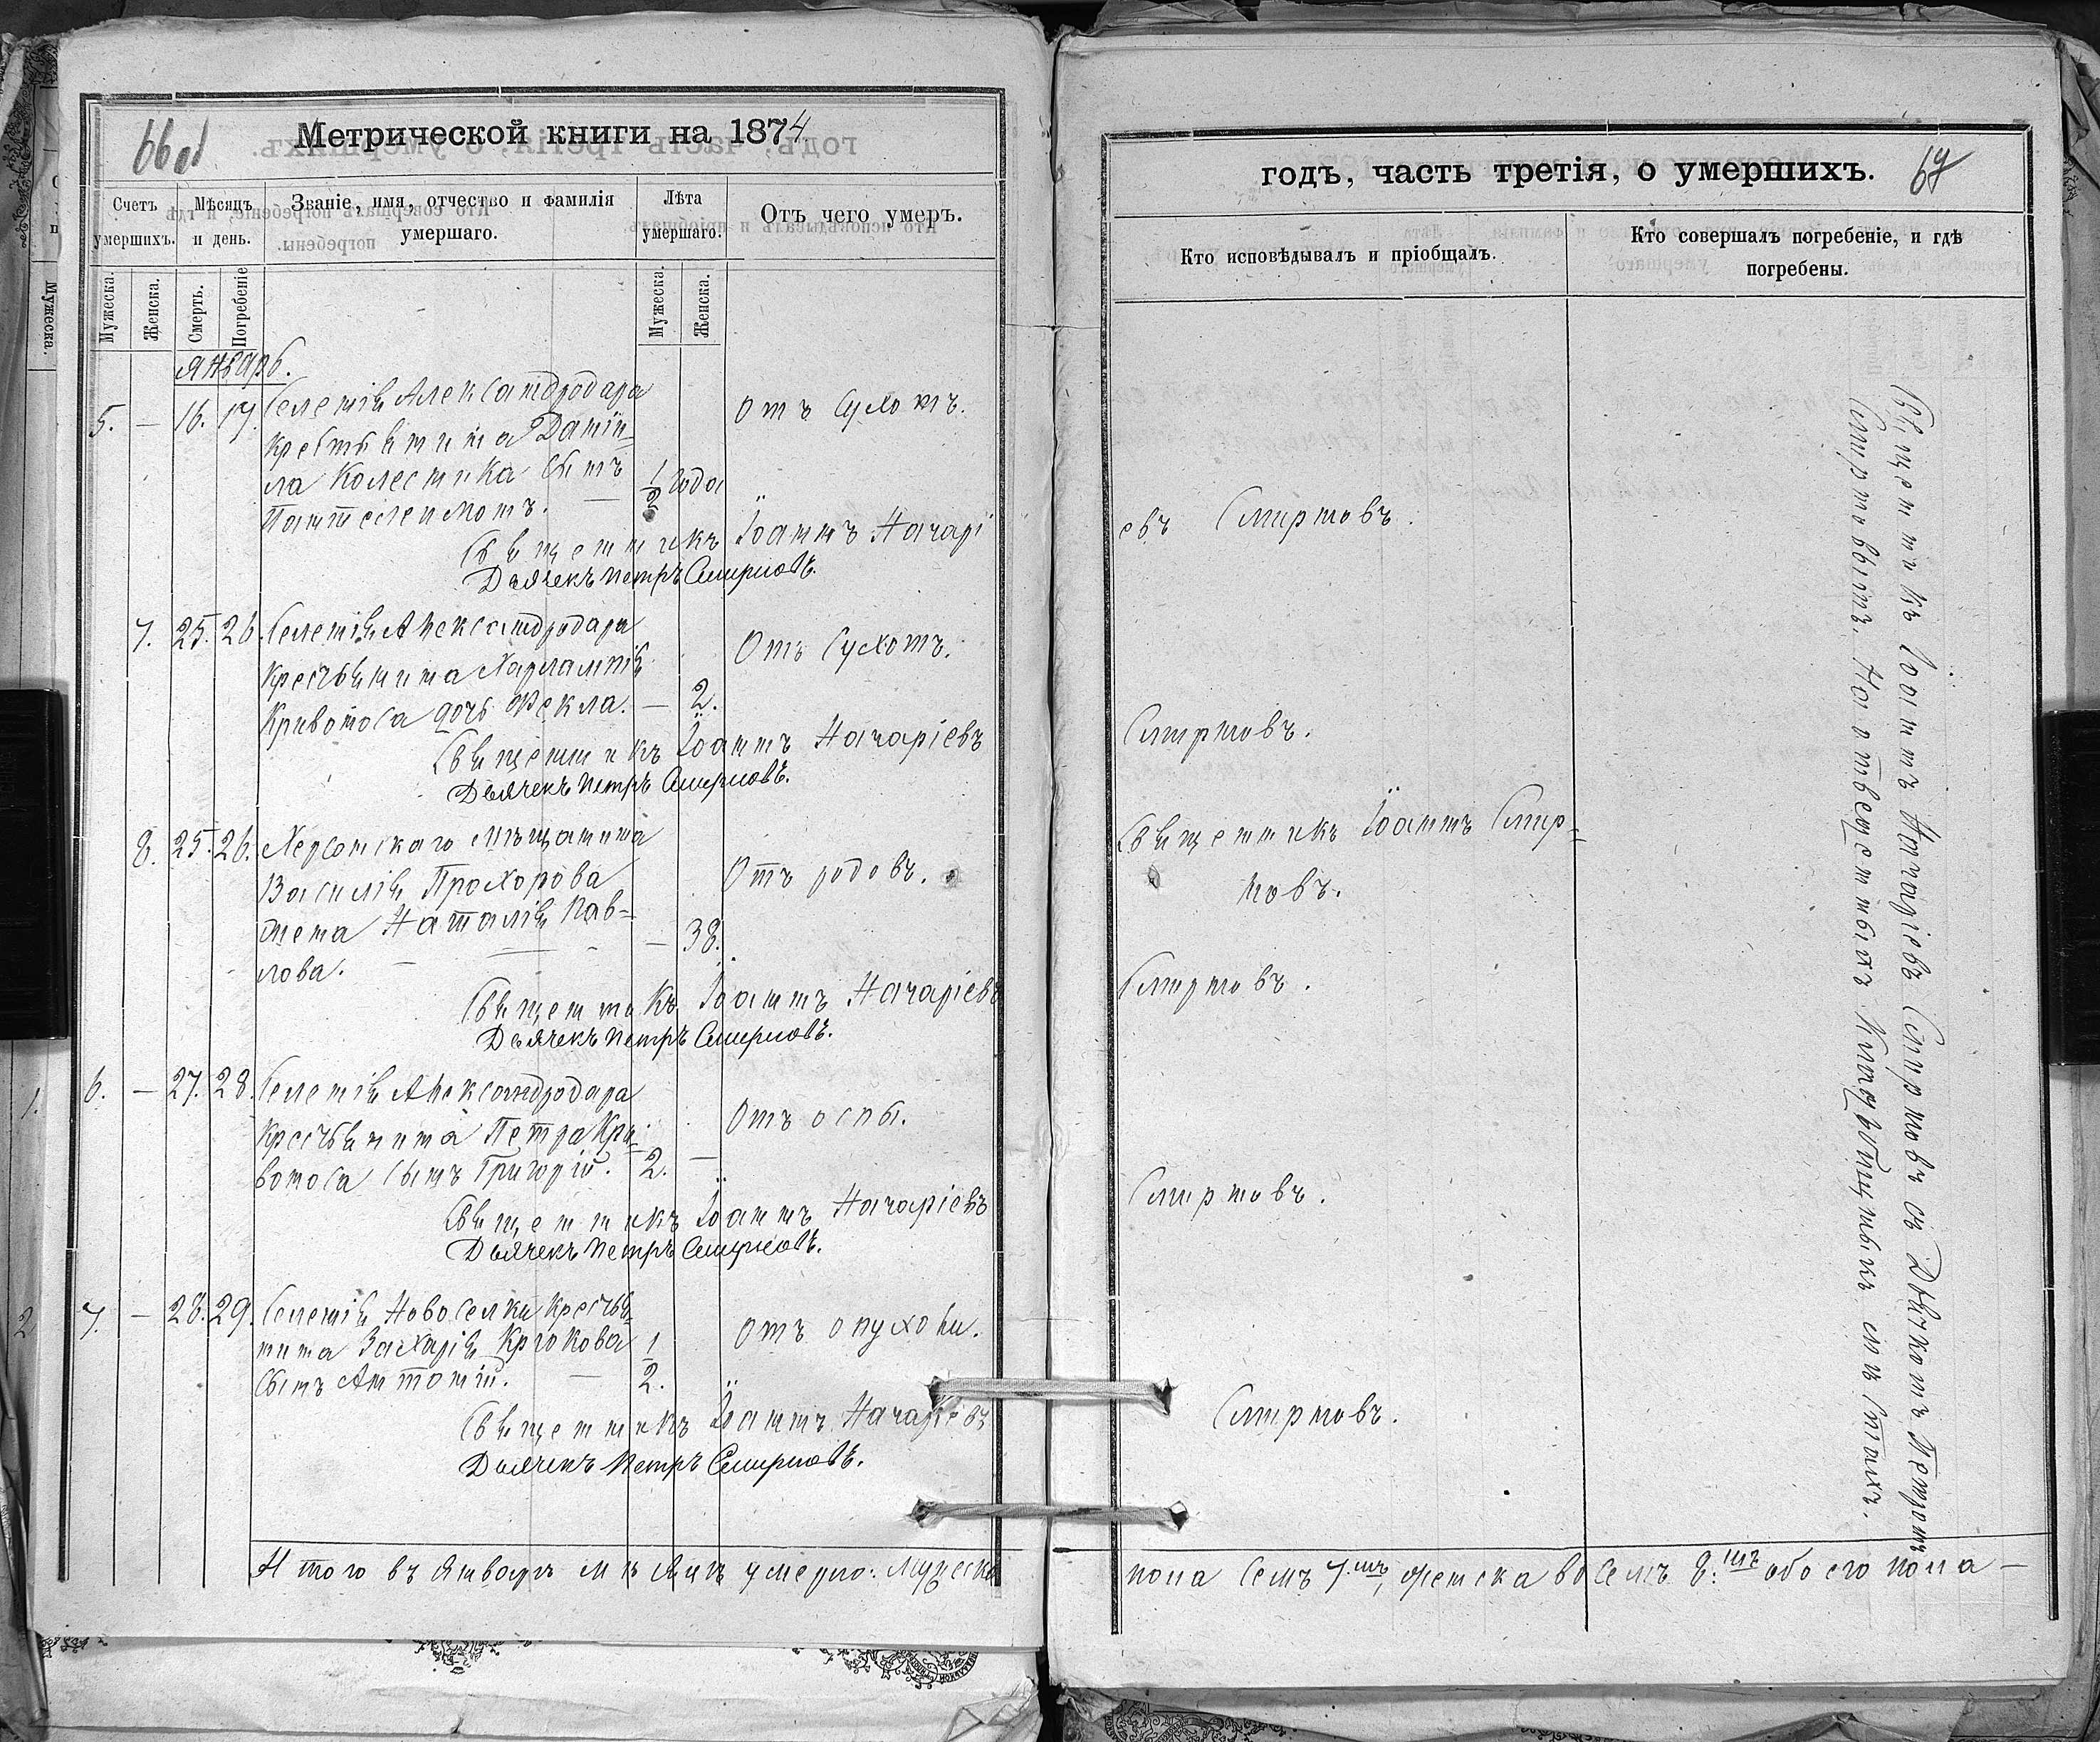 66 об
Метрической книги на 1874
Счетъ умершихъ.
Мѣсяцъ и день.
Званіе, имя, отчество и фамилія умершаго.
Лѣта умершаго.
Отъ чего умеръ.
Мужеска.
Женска.
Смерть.
Погребеніе
Мужеска.
Женска.
Январь.
5. — 16. 17. Селенія Александродара Отъ Сухотъ.
Крестьянина Даніи-
ла Колесника сынъ
Пантелеимонъ. — 1/2 года
Священникъ Іоаннъ Начарі
Дьячекъ Петръ Смирновъ.
7. 25. 26. Селенія Александродара Отъ Сухотъ.
Крестьянина Харлампія
Кривоноса дочь Фекла. — 2.
Священникъ Іоаннъ Начаріевъ
Дьячекъ Петръ Смирновъ.
8. 25. 26. Херсонскаго Мѣщанина
Василія Прохорова Отъ родовъ.
жена Наталія Пав-
лова. — — 38.
Священникъ Іоаннъ Начаріевъ
Дьячекъ Петръ Смирновъ.
6. — 27. 28. Селенія Александродара
Крестьянина Петра Кри- Отъ оспы.
воноса сынъ Григорій. 2. —
Священникъ Іоаннъ Начаріевъ
Дьячекъ Петръ Смирновъ.
7. — 28. 29. Селенія Новоселки Крестья-
нина Захарія Крюкова Отъ опухоли.
сынъ Антоній. — 1/2.
Священникъ Іоаннъ Начаріевъ
Дьячекъ Петръ Смирновъ.
Итого въ Январѣ мѣсяцѣ умерло: Мужеска
годъ, часть третія, о умершихъ.
67
Кто исповѣдывалъ и пріобщалъ.
Кто совершалъ погребеніе, и гдѣ погребены.
евъ Смирновъ.
Смирновъ.
Священникъ Іоаннъ Смир-
новъ.
Смирновъ.
Смирновъ.
Смирновъ.
Священникъ Іоаннъ Начаріевъ Смирновъ съ Дьячкомъ Петромъ
Смирновымъ. На Кладбищ
пола Семъ 7.мъ, Женска восемъ 8.мъ обоего пола —